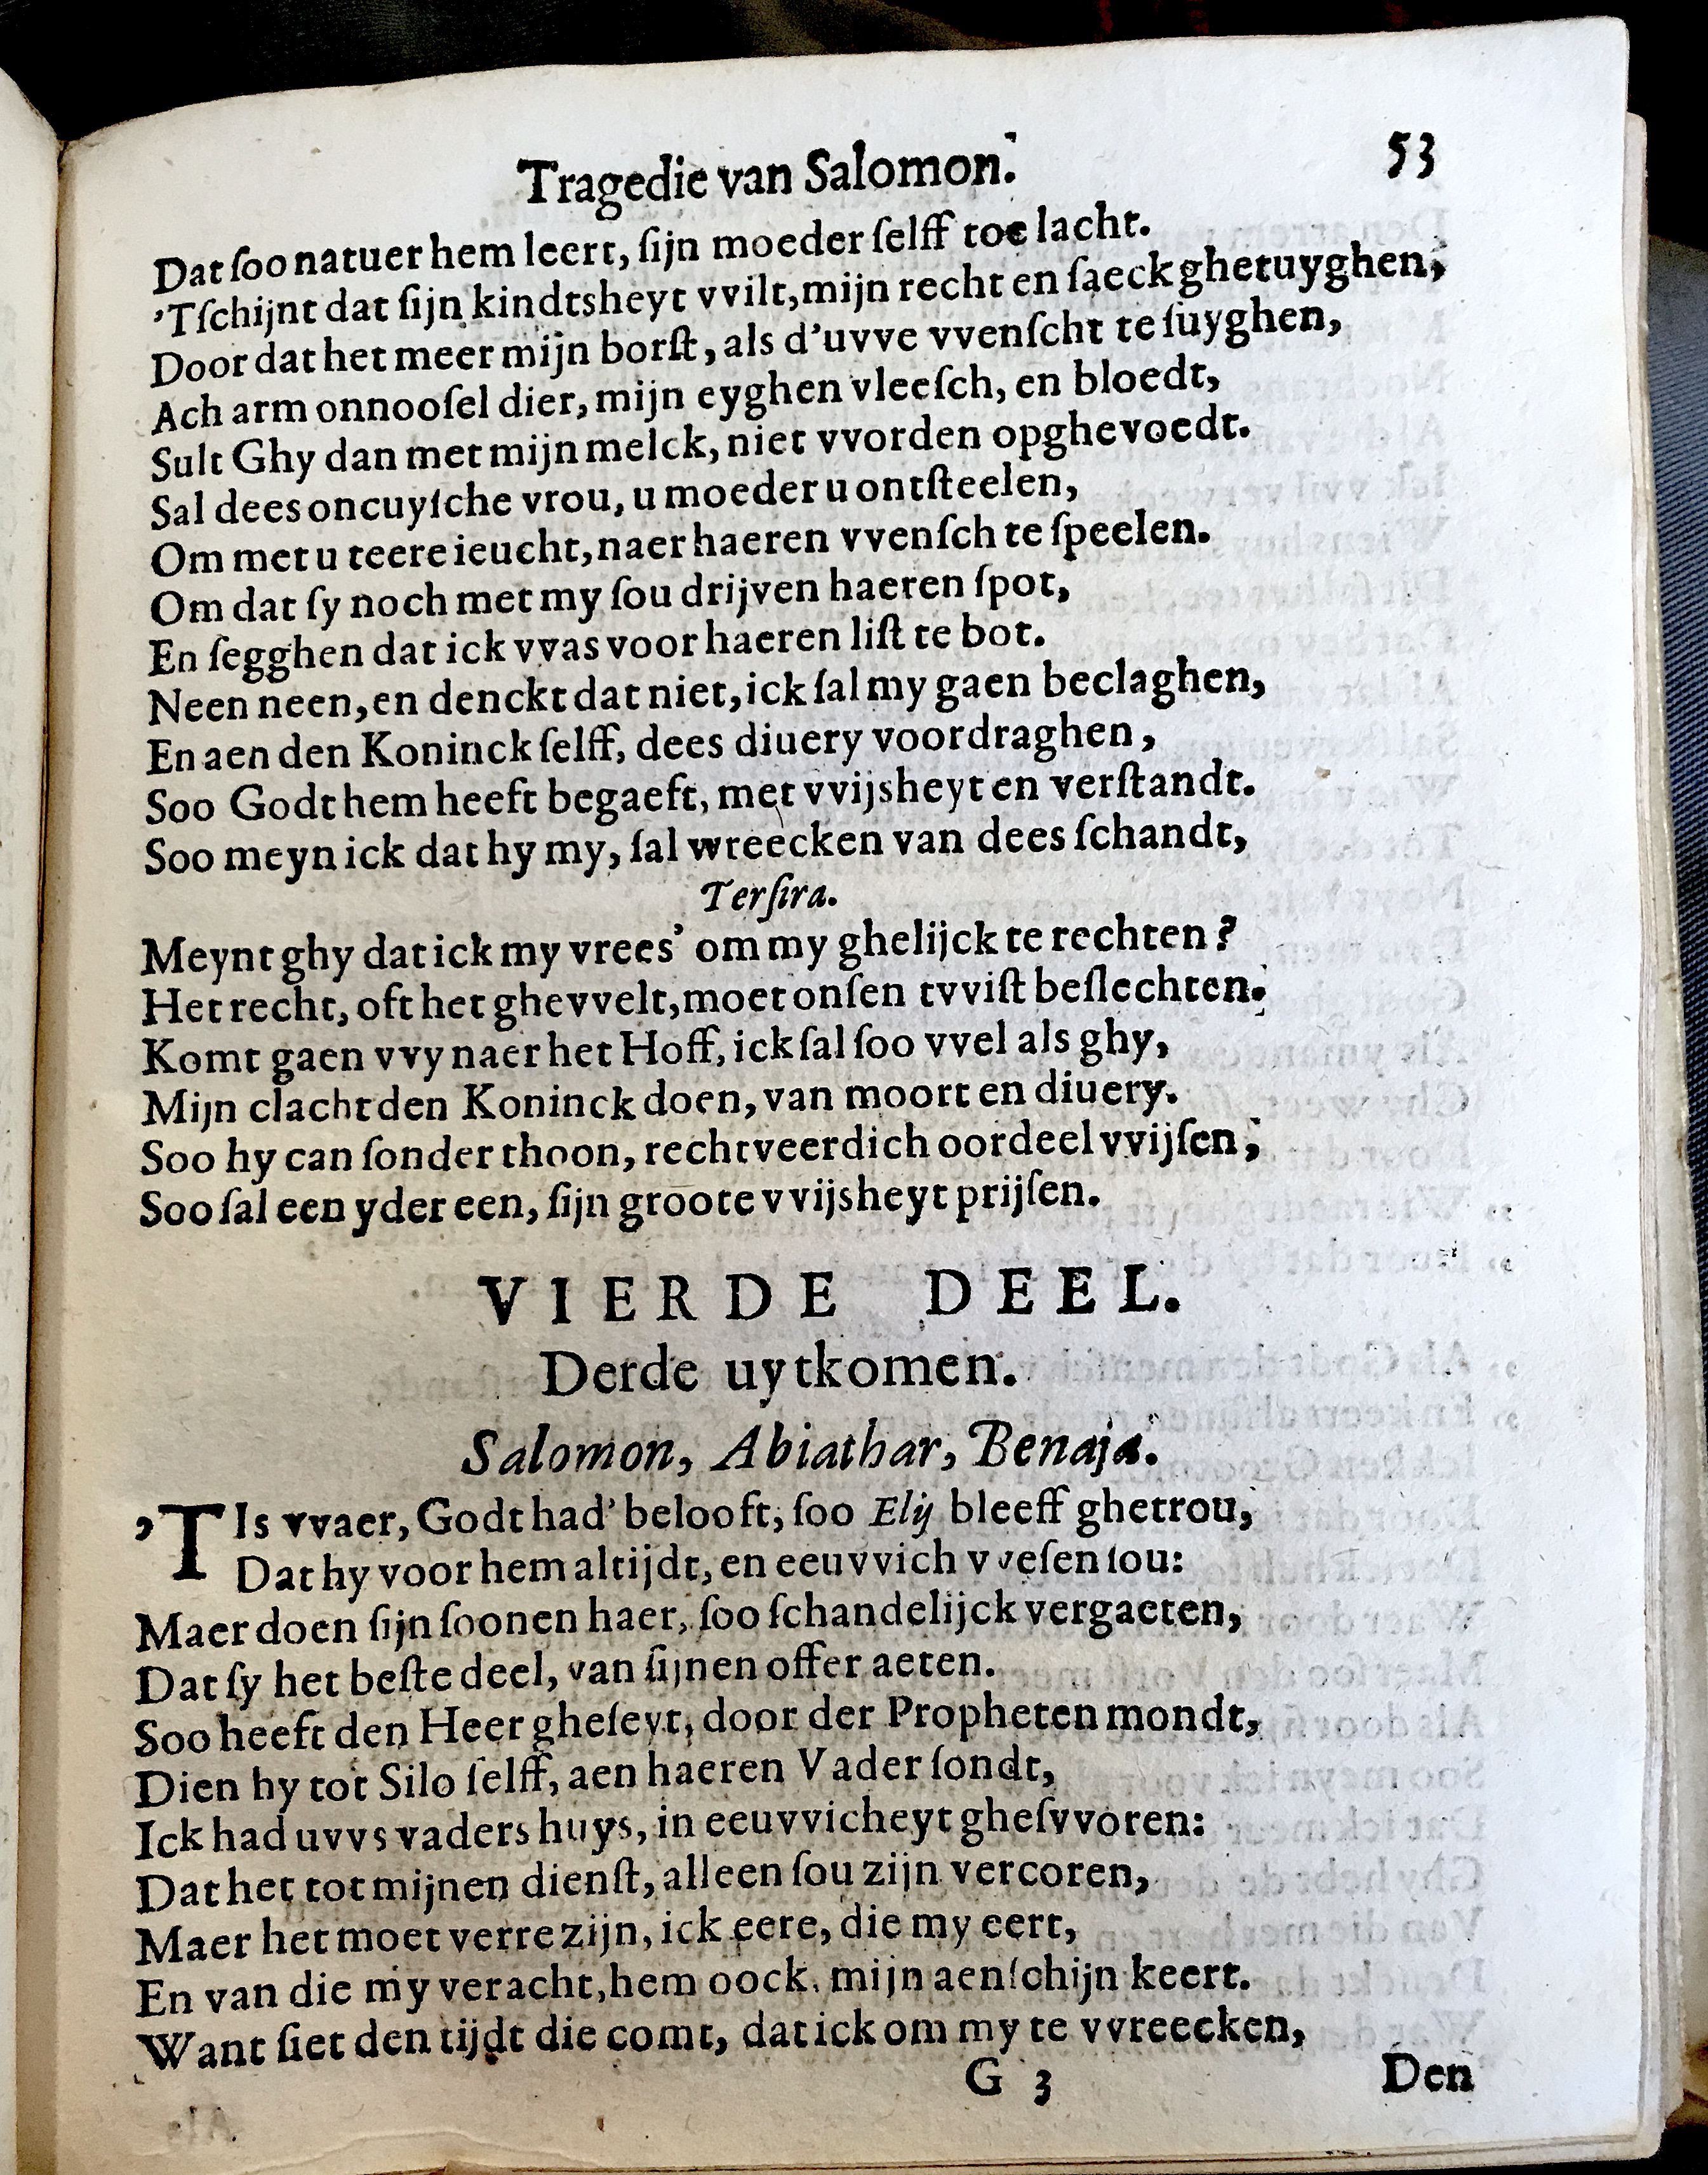 Tragedie van Salomon. 53
Dat ſoo natuer hem leert, ſijn moeder ſelff toe lacht.
'Tſchijnt dat ſijn kindtsheyt vvilt, mijn recht en ſaeck ghetuyghen,
Door dat het meer mijn borſt, als d'uvve vvenſcht te ſuyghen,
Ach arm onnooſel dier, mijn eyghen vleeſch, en bloedt,
Sult Ghy dan met mijn melck, niet vvorden opghevoedt.
Sal dees oncuyſche vrou, u moeder u ontſteelen,
Om met u teere ieucht, naer haeren vvenſch te ſpeelen.
Om dat ſy noch met my ſou drijven haeren ſpot,
En ſegghen dat ick vvas voor haeren liſt te bot.
Neen neen, en denckt dat niet, ick ſal my gaen beclaghen,
En aen den Koninck ſelff, dees diuery voordraghen,
Soo Godt hem heeft begaeft, met vvijsheyt en verſtandt.
Soo meyn ick dat hy my, ſal wreecken van dees ſchandt,
Terſira.
Meynt ghy dat ick my vrees' om my ghelijck te rechten?
Het recht, oft het ghevvelt, moet onſen tvviſt beſlechten.
Komt gaen vvy naer het Hoff, ick ſal ſoo vvel als ghy,
Mijn clacht den Koninck doen, van moort en diuery.
Soo hy can ſonder thoon, rechtveerdich oordeel vvijſen,
Soo ſal een yder een, ſijn groote vvijsheyt prijſen.
VIERDE DEEL.
Derde uytkomen.
Salomon, Abiathar, Benaja.
'TIs vvaer, Godt had' belooft, ſoo Elÿ bleeff ghetrou,
Dat hy voor hem altijdt, en eeuvvich vveſen ſou:
Maer doen ſijn ſoonen haer, ſoo ſchandelijck vergaeten,
Dat ſy het beſte deel, van ſijnen offer aeten.
Soo heeft den Heer gheſeyt, door der Propheten mondt,
Dien hy tot Silo ſelff, aen haeren Vader ſondt,
Ick had uvvs vaders huys, in eeuvvicheyt gheſvvoren:
Dat het tot mijnen dienſt, alleen ſou zijn vercoren,
Maer het moet verre zijn, ick eere, die my eert,
En van die my veracht, hem oock, mijn aenſchijn keert.
Want ſiet den tijdt die comt, dat ick om my te vvreecken,
G 3 Den